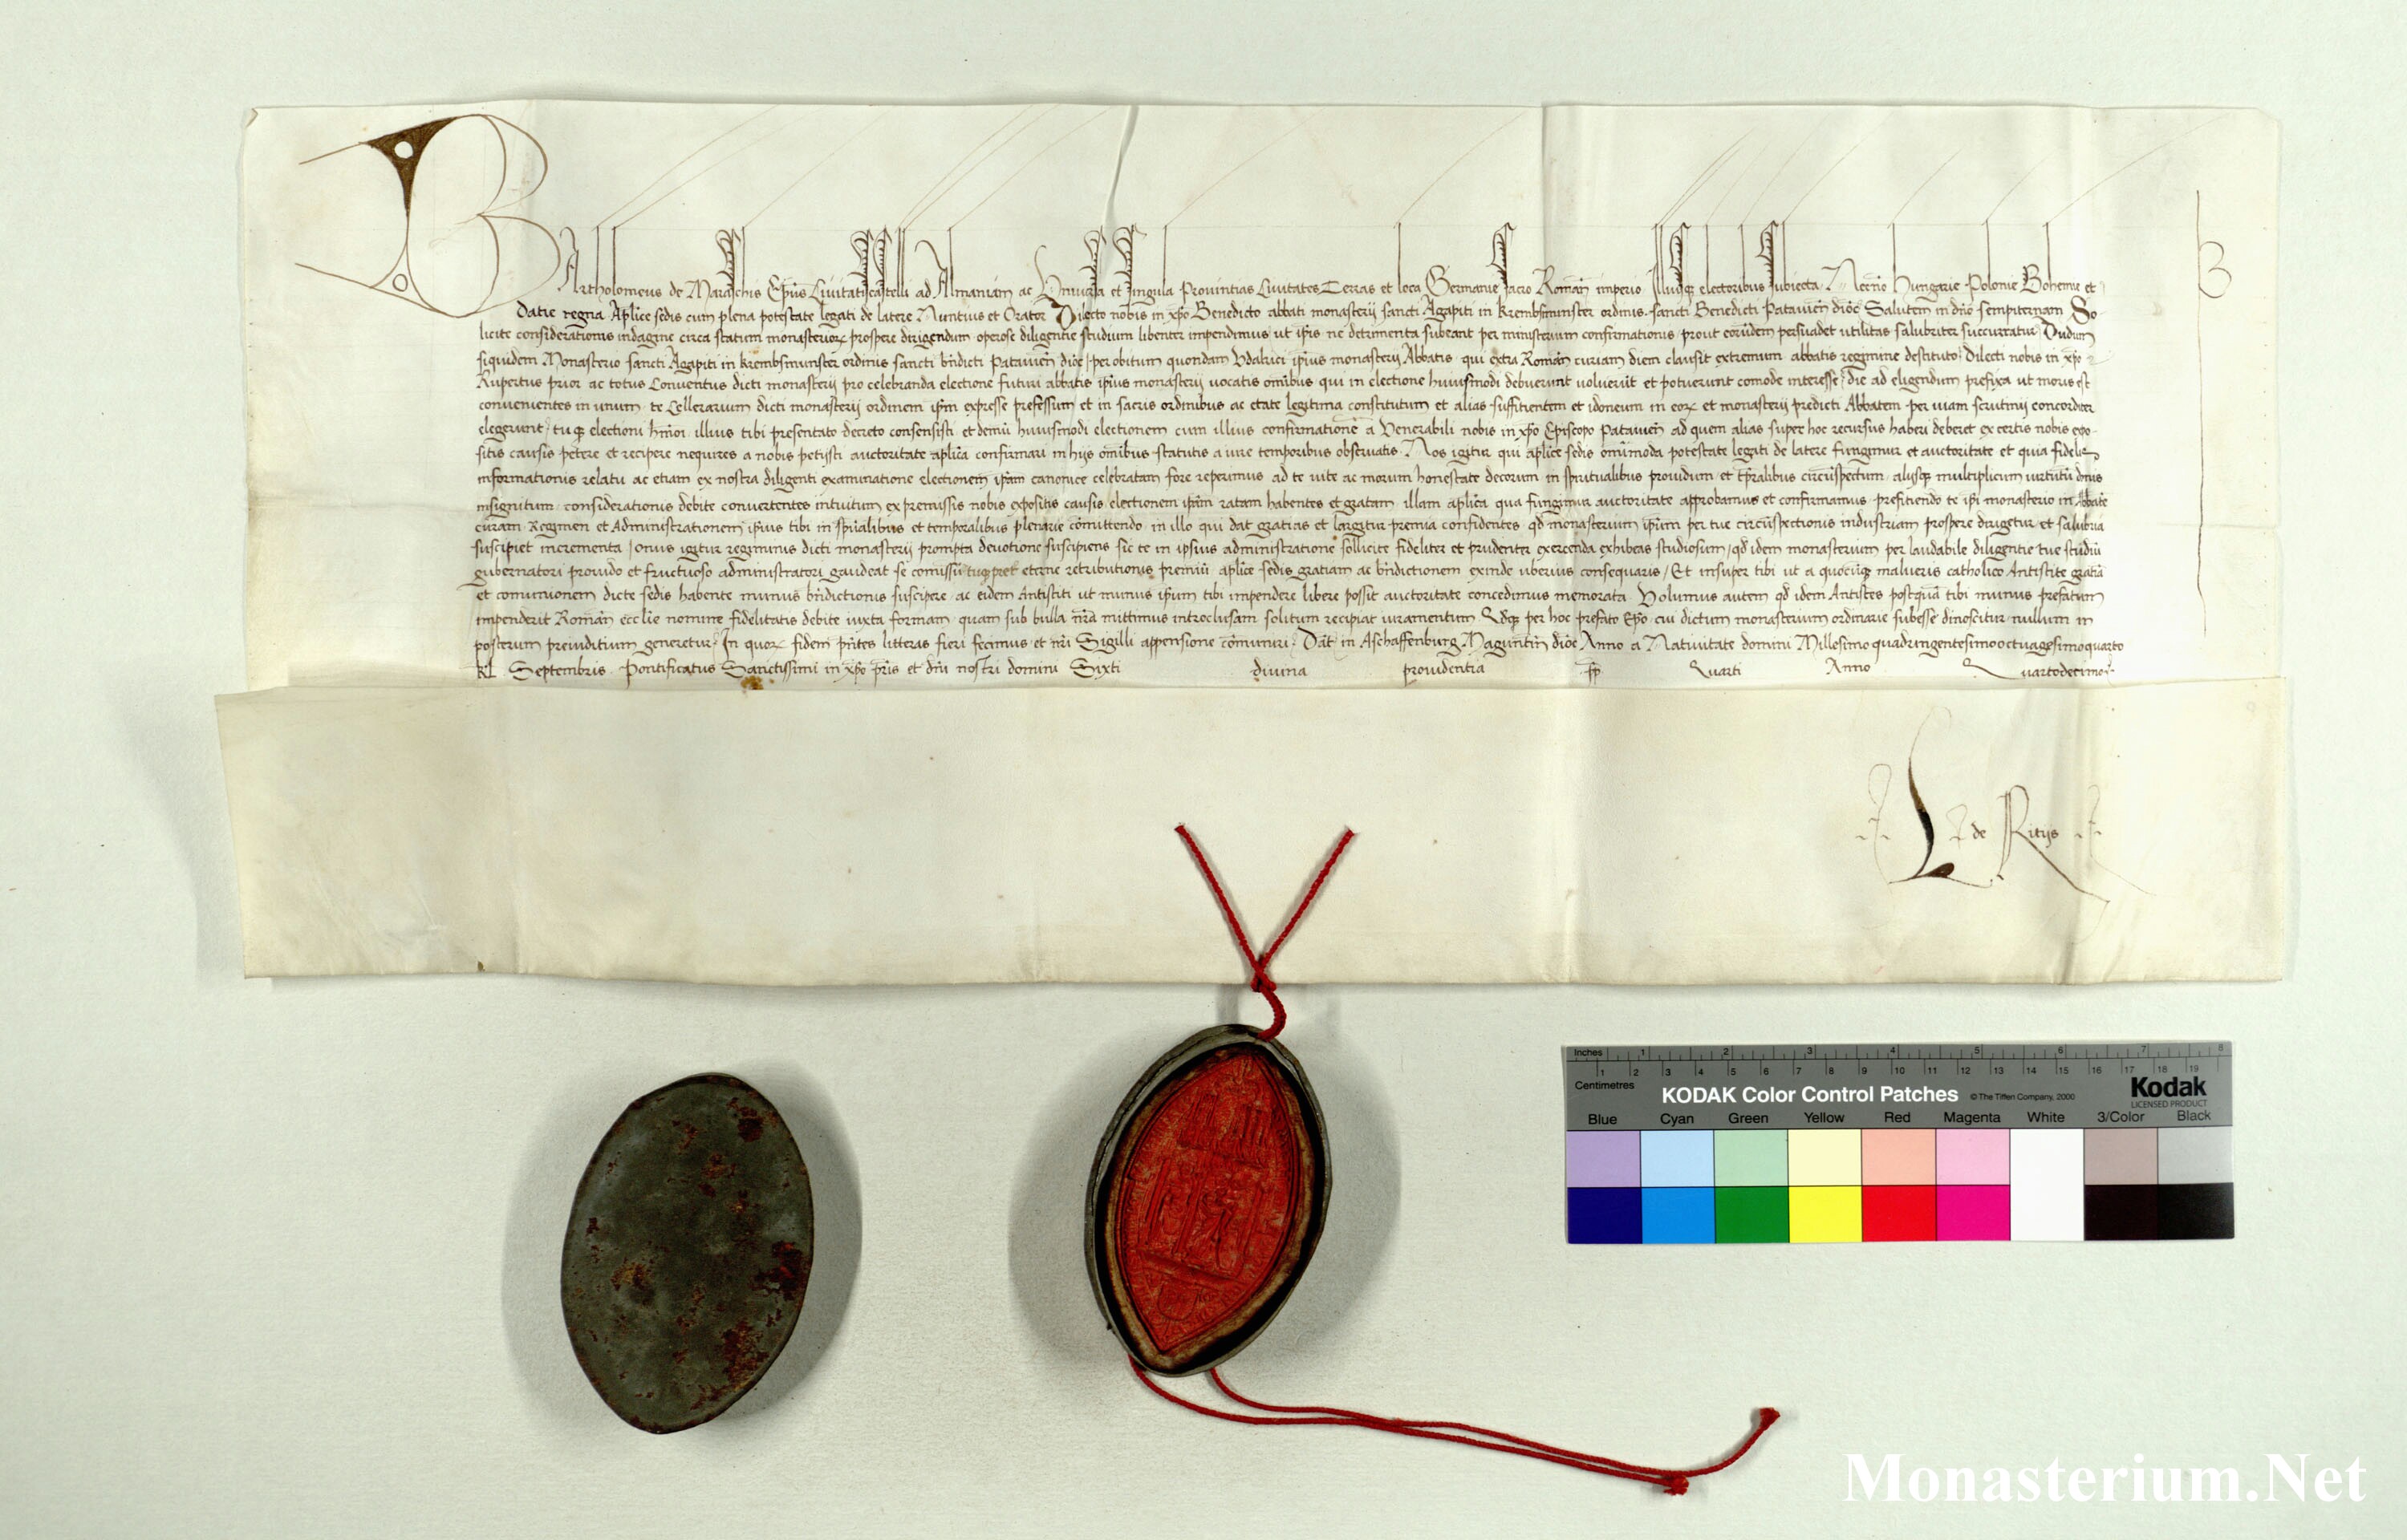 Bartholomeus de Maraschis Ep̄us Ciuitatiscastelli ad Almaniam ac Vniuersa et singula Prouintias Ciuitates Terras et loca Germanie sacro Roman̄ imperio Illiusq electoribus subiecta Necnō Hungarie Polonie Bohemie et
Datie regna Aplice sedis cum plena potestate legati de latere Nuntius et Orator Dilecto nobis in xp̄o Benedicto abbati monasterij sancti Agapiti in Krembsmunster ordinis sancti Benedicti Patauien̄ dioc̄ Salutem in dn̄o sempiternam So
licite considerationis indagine circa statum monasteriorꝝ prospere dirigendum operose diligentie studium libenter impendimus ut ip̄is ne detrimenta subeant per ministerium confirmationis prout eorūdem persuadet utilitas salubriter succurratur Dudum
siquidem Monasterio sancti Agapiti in krembsmunster ordinis sancti bn̄dicti Patauien̄ dioc̄ per obitum quondam Vdalrici ip̄ius monasterij Abbatis qui extra Roman̄ curiam diem clausit extremum abbatis regimine destituto Dilecti nobis in xp̄o
Rupertus prior ac totus Conuentus dicti monasterij pro celebranda electione futuri abbatis ip̄ius monasterij uocatis om̄ibus qui in electione huiusmodi debuerunt uoluerūt et potuerunt comode interesse die ad eligendum prefixa ut moris est
conuenientes in unum te Cellerarium dicti monasterij ordinem ip̄m expresse professum et in sacris ordinibus ac etate legitima constitutum et alias suffitientem et idoneum in eorꝝ et monasterij predicti Abbatem per uiam scrutinij concorditer
elegerunt tuq electioni hm̄oi illius tibi presentato decreto consensisti et demū huiusmodi electionem cum illius confirmatione a Venerabili nobis in xp̄o Episcopo Patauien̄ ad quem alias super hoc recursus haberi deberet ex certis nobis expo
sitis causis petere et recipere nequires a nobis petijsti auctoritate aplica confirmari in hijs om̄ibus statutis a iure temporibus obseruatis Nos igitur qui aplice sedis om̄imoda potestate legati de latere fungimur et auctoritate et quia fidelium
informationis relatu ac etiam ex nostra diligenti examinatione electionem ip̄am canonice celebratam fore reperimus ad te uite ac morum honestate decorum in spiritualibus prouidum et tp̄ralibus circūspectum alijsq multiplicium uirtutū donis
insignitum considerationis debite conuertentes intuitum ex premissis nobis expositis causis electionem ip̄am ratam habentes et gratam illam aplica qua fungimur auctoritate approbamus et confirmamus prefitiendo te ip̄i monasterio in Abbatē
curam Regimen et Administrationem ip̄ius tibi in spiritualibus et temporalibus plenarie cōmittendo in illo qui dat gratias et largitur premia confidentes qd monasterium ip̄um per tue circūspectionis industriam prospere dirigetur et salubria
suscipiet incrementa Onus igitur regiminis dicti monasterij prompta deuotione suscipiens sic te in ipsius administratione sollicite fideliter et prudenter exercenda exhibeas studiosum qd idem monasterium per laudabile diligentie tue studiū
gubernatori prouido et fructuoso administratori gaudeat se comissū tuq preter eterne retributionis premiū aplice sedis gratiam ac bn̄dictionem exinde uberius consequaris Et insuper tibi ut a quocūq malueris catholico Antistite gratiā
et comunionem dicte sedis habente munus bn̄dictionis suscipere ac eidem Antistiti ut munus ip̄um tibi impendere libere possit auctoritate concedimus memorata Volumus autem qd idem Antistes postquā tibi munus prefatum
impenderit Roman̄ ecclie nomine fidelitatis debite iuxta formam quam sub bulla nr̄a mittimus introclusam solitum recipiat iuramentum Qdq per hoc prefato Ep̄o cui dictum monasterium ordinarie subesse dinoscitur nullum in
posterum preiuditium generetur In quorꝝ fidem pn̄tes litteras fieri fecimus et nr̄i Sigilli appensione cōmuniri Dat̄ in Aschaffenburg Maguntin̄ dioc̄ Anno a Natiuitate domini Millesimoquadringentesimooctuagesimoquarto
kl Septembris Pontificatus Sanctissimi in xp̄o pr̄is et dn̄i nostri domini Sixti diuina prouidentia pp Quarti Anno Quartodecimo
B
L de Ritijs
Inches 1 2 3 4 5 6 7 8
1 2 3 4 5 6 7 8 9 10 11 12 13 14 15 16 17 18 19
Centimetres
KODAK Color Control Patches © The Tiffen Company, 2000
Kodak
LICENSED PRODUCT
Blue Cyan Green Yellow Red Magenta White 3/Color Black
Monasterium.Net